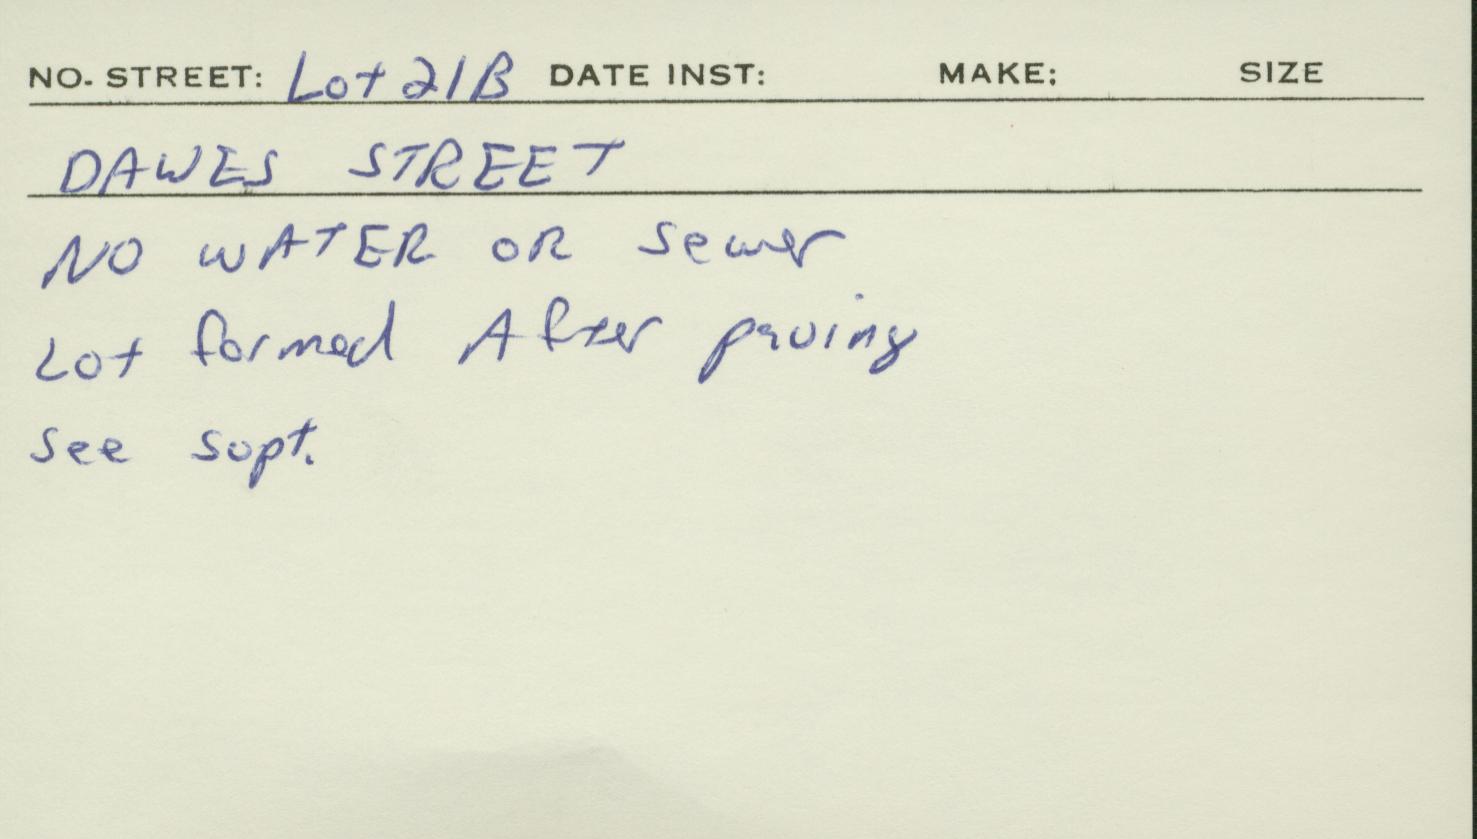 NO. STREET: Lot 21B DATE INST: MAKE: SIZE
DAWES STREET
NO WATER OR Sewer
Lot formed After paving
See Supt.